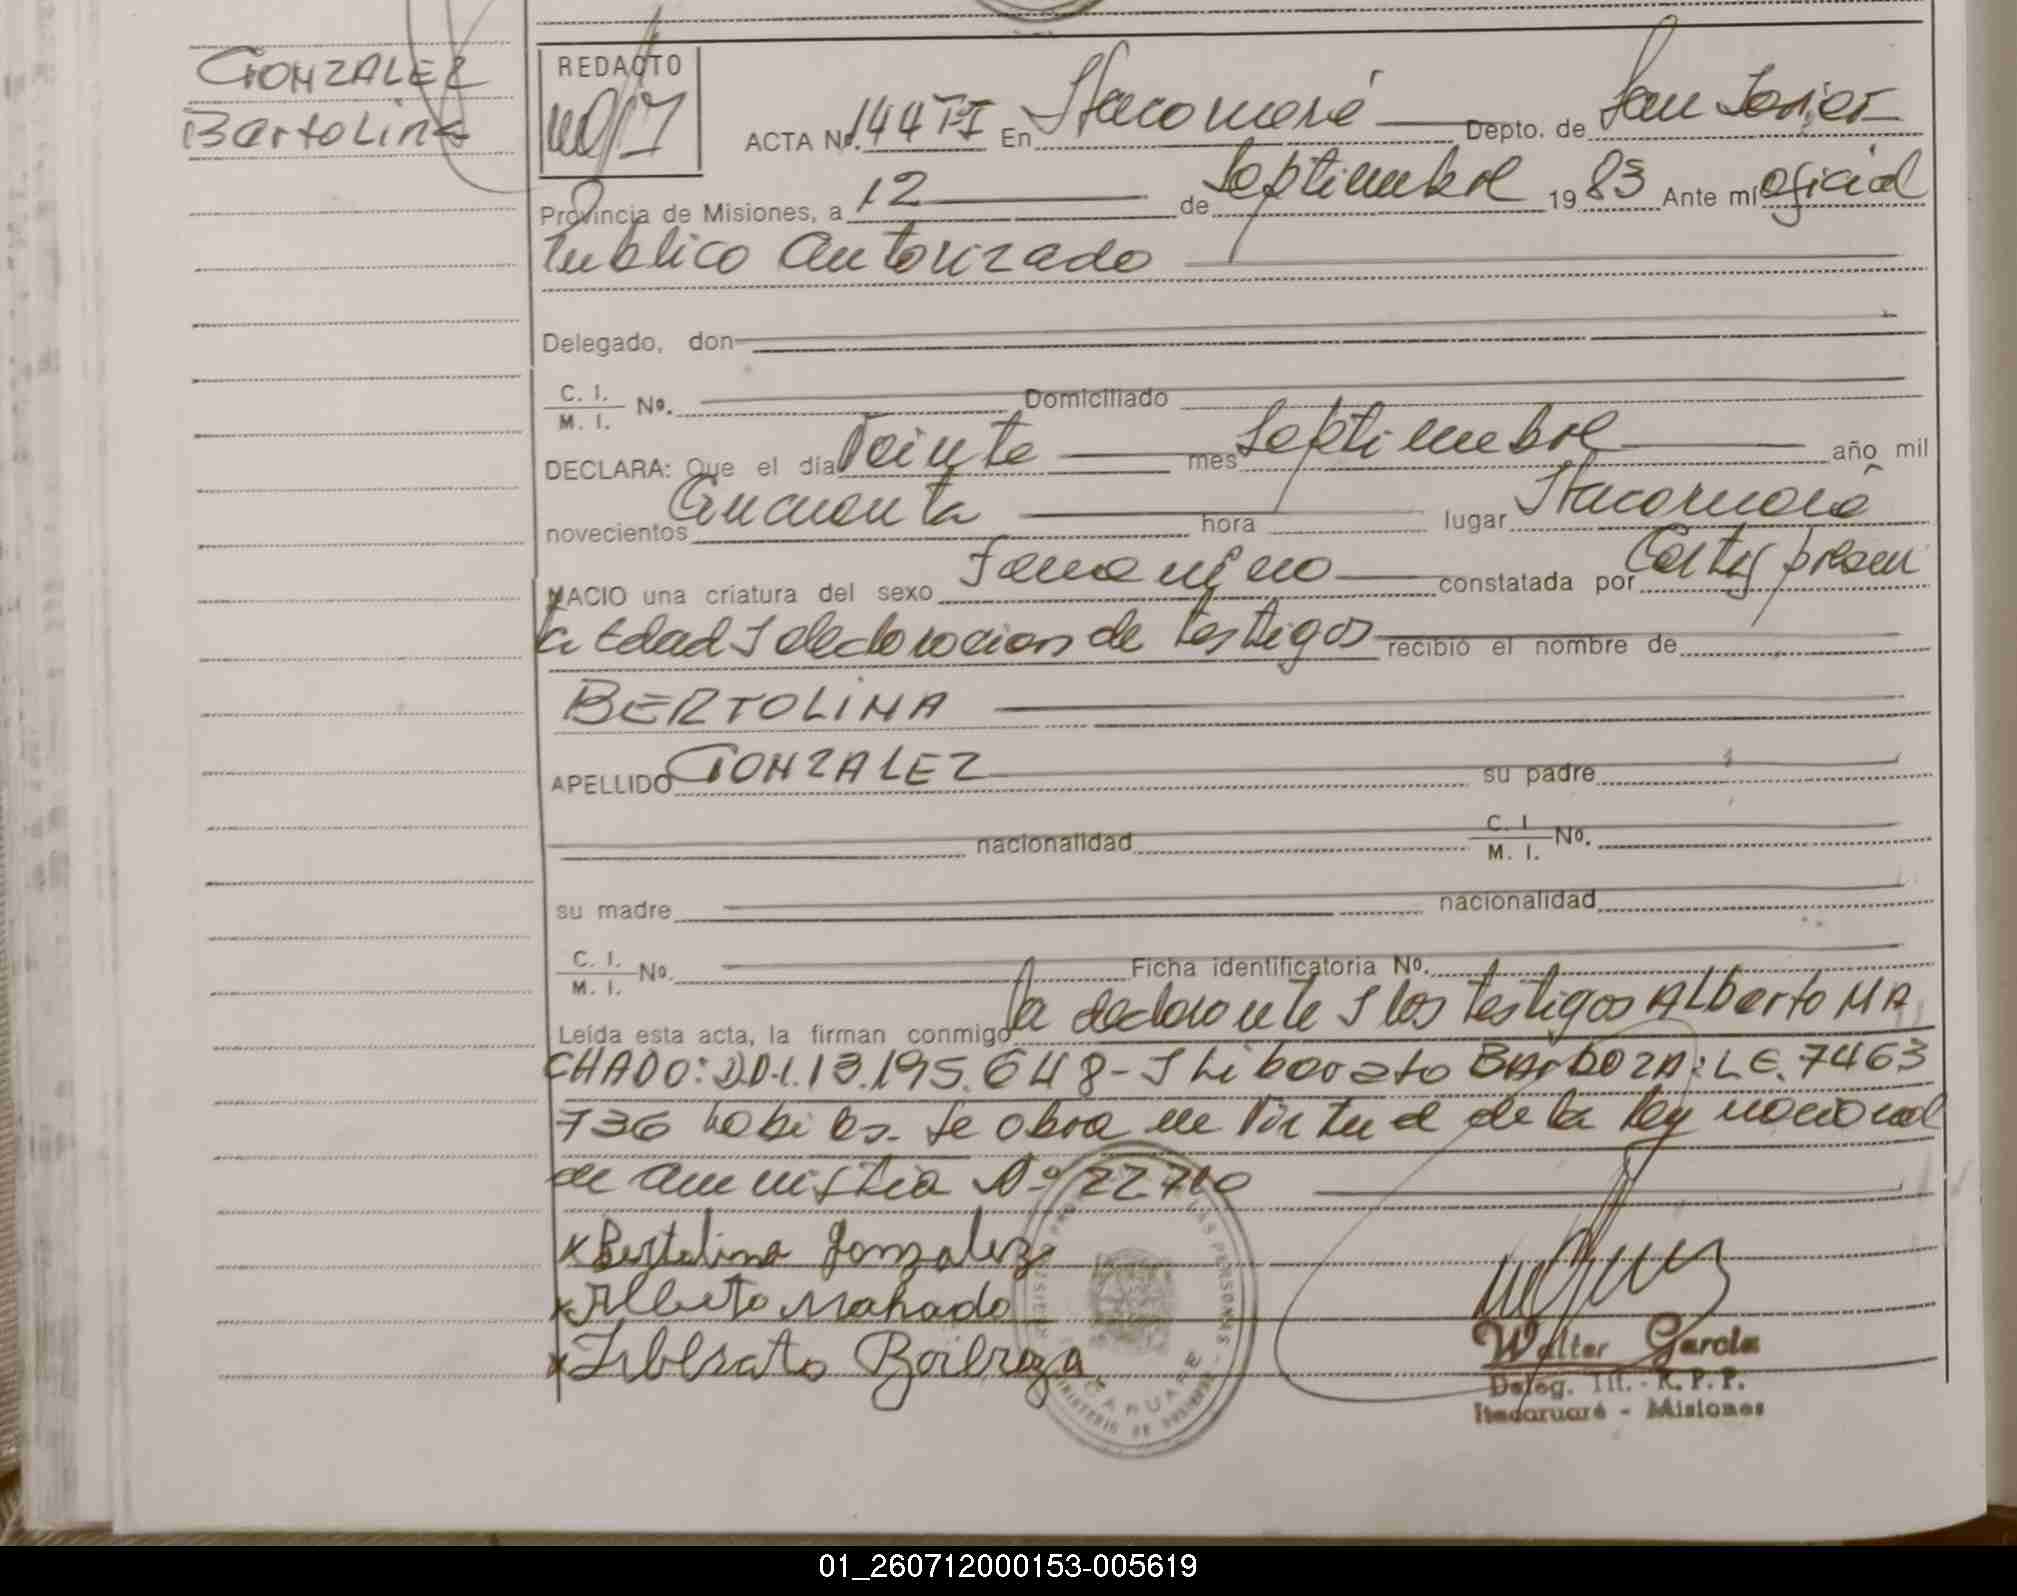 GONZALEZ
Bertolina
REDACTO
ACTA No. 144 TI En Itacaruaré Depto. de San Javier
Provincia de Misiones, a 12 de Septiembre 1983 Ante mí oficial
Publico Autorizado
Delegado, don
C. I.
M. I. No. Domiciliado
DECLARA: Que el día Veinte mes Septiembre año mil
novecientos Cincuenta hora lugar Itacaruaré
NACIO una criatura del sexo Femenino constatada por Certif. presun
ta Edad y declaracion de testigos recibió el nombre de
BERTOLINA
APELLIDO GONZALEZ su padre
nacionalidad C. I.
M. I. No.
su madre nacionalidad
C. I.
M. I. No. Ficha identificatoria No.
Leída esta acta, la firman conmigo la declarante y los testigos Alberto MA
CHADO: D.N.I. 13.195.648 - y Liborato BARBOZA: L.E. 7463
736 habiles. Se obra en Virtud de la ley nacional
de amnistia No 22710
x Bertolina Gonzalez
x Alberto Mahado
x Liberato Barboza
Walter García
Deleg. Tit. - R. P. P.
Itacaruaré - Misiones
01_260712000153-005619